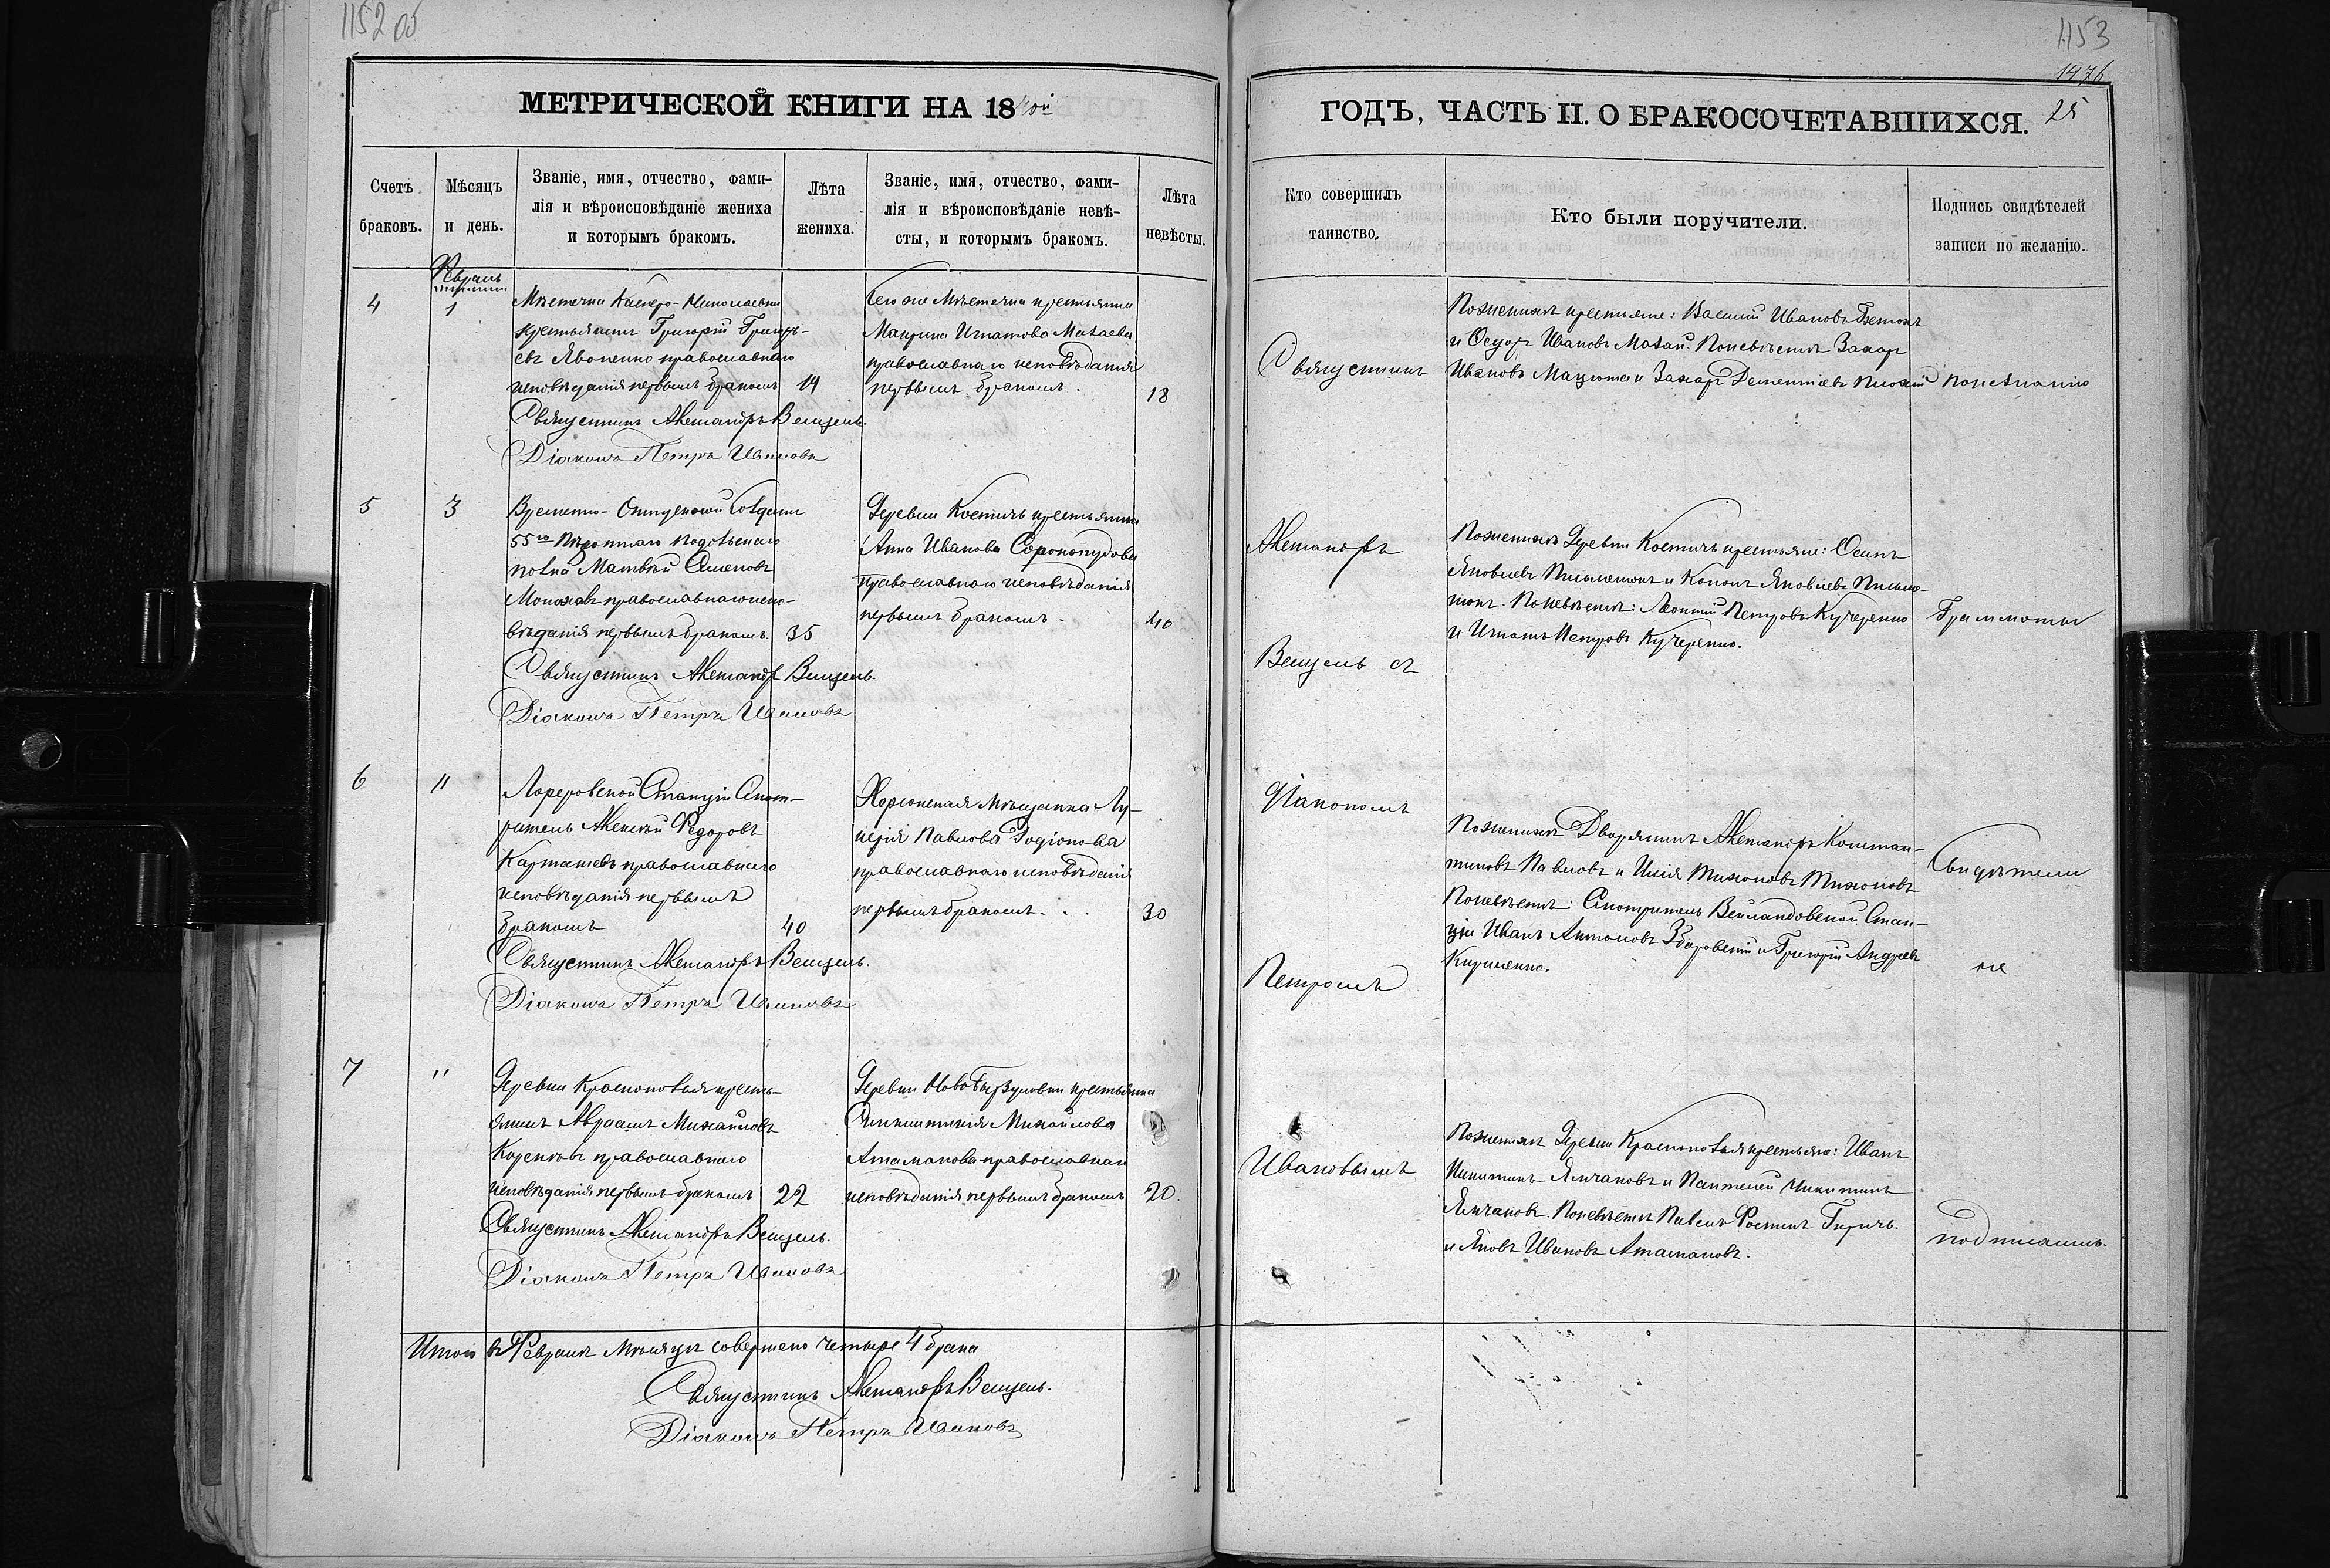 1152 об
1153
1476
25
МЕТРИЧЕСКОЙ КНИГИ НА 18 ой
ГОДЪ, ЧАСТЬ II. О БРАКОСОЧЕТАВШИХСЯ.
Счетъ браковъ.
Мѣсяцъ и день.
Званіе, имя, отчество, фами-
лія и вѣроисповѣданіе жениха
и которымъ бракомъ.
Лѣта
жениха.
Званіе, имя, отчество, фами-
лія и вѣроисповѣданіе невѣ-
сты, и которымъ бракомъ.
Лѣта
невѣсты.
Кто совершилъ
таинство.
Кто были поручители.
Подпись свидѣтелей
записи по желанію.
Февраль
4
1
Мѣстечка Касперо-Николаевки
крестьянинъ Григорій Григорь-
евъ Явоненко православнаго
исповѣданія первымъ бракомъ
19
Священникъ Александръ Венцель.
Діаконъ Петръ Ивановъ
Того же Мѣстечка крестьянка
Макрина Игнатова Мазаева
православнаго исповѣданія
первымъ бракомъ.
18
Священникъ
По женихѣ крестьяне: Василій Ивановъ
и Ѳедоръ Ивановъ Мазай. По невѣстѣ Захаръ
Ивановъ Мацюта и Захаръ Дементіевъ
По желанію
5
3
Временно-Отпускной Солдатъ
55го Пѣхотнаго Подольскаго
полка Матвѣй Семеновъ
Монаховъ православнаго испо-
вѣданія первымъ бракомъ.
35
Священникъ Александръ Венцель.
Діаконъ Петръ Ивановъ
Деревни Костичъ крестьянка
Анна Иванова Сорокопудова
православнаго исповѣданія
первымъ бракомъ.
40
Александръ
Венцель съ
По женихѣ Деревни Костичъ крестьяне: Осипъ
Яковлевъ Письменюкъ и Кононъ Яковлевъ Письме-
нюкъ. По невѣстѣ: Леонтій Петровъ Кучеренко
и Игнатъ Петровъ Кучеренко.
Грамматы
6
11
Лореровской Станціи Смот-
ритель Алексѣй Федоровъ
Карташевъ православнаго
исповѣданія первымъ
бракомъ
40
Священникъ Александръ Венцель.
Діаконъ Петръ Ивановъ
Херсонская Мѣщанка Лу-
керія Павлова Родіонова
православнаго исповѣданія
первымъ бракомъ.
30
Діакономъ
Петромъ
По женихѣ Дворянинъ Александръ Констан-
тиновъ Павловъ и Илія Тихоновъ Тихоновъ
По невѣстѣ: Смотритель Вейландовской Стан-
ціи Иванъ Антоновъ Збаровскій и Григорій Андреевъ
Кириленко.
Свидѣтели
не
7
"
Деревни Краснополья кресть-
янинъ Авраамъ Михайловъ
Кореневъ православнаго
исповѣданія первымъ бракомъ
22
Священникъ Александръ Венцель.
Діаконъ Петръ Ивановъ
Деревни Новобирзуловки крестьянка
Синклитикія Михайлова
Атаманова православнаго
исповѣданія первымъ бракомъ
20.
Ивановымъ
По женихѣ Деревни Краснополья крестьяне: Иванъ
Никитинъ Ямчановъ и Пантелей Никитинъ
Ямчановъ. По невѣстѣ Павелъ Фокинъ Гиричъ.
и Яковъ Ивановъ Атамановъ.
подписались.
Итого въ Февралѣ Мѣсяцѣ совершено четыре 4 брака
Священникъ Александръ Венцель.
Діаконъ Петръ Ивановъ